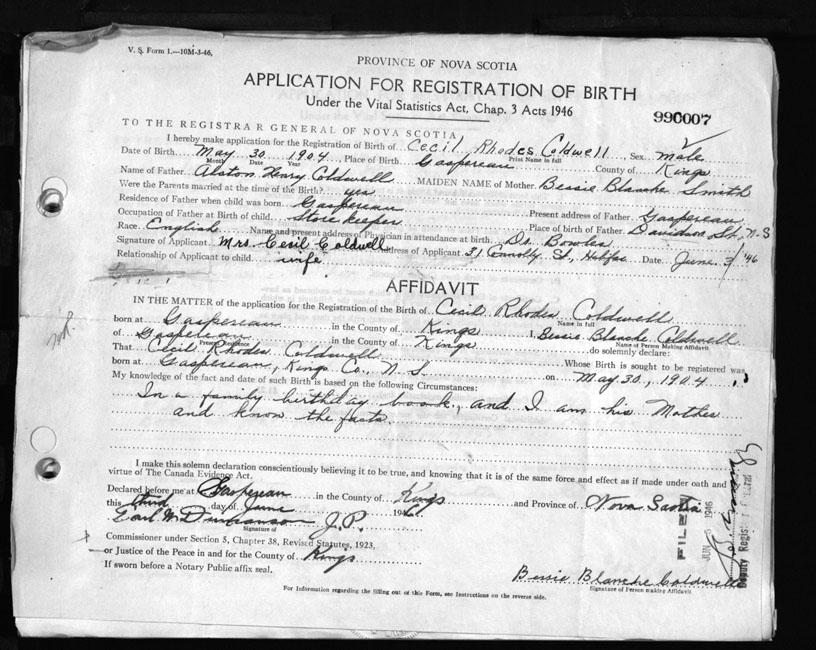 V. S. Form 1.—10M-3-46.
PROVINCE OF NOVA SCOTIA
APPLICATION FOR REGISTRATION OF BIRTH
Under the Vital Statistics Act, Chap. 3 Acts 1946
990007
TO THE REGISTRAR GENERAL OF NOVA SCOTIA
I hereby make application for the Registration of Birth of Cecil Rhodes Coldwell, Sex male
Print Name in full
Date of Birth May 30 1904, Place of Birth Gaspereau County of Kings
Month Date Year
Name of Father Alston Henry Coldwell MAIDEN NAME of Mother Bessie Blanche Smith
Were the Parents married at the time of the Birth? yes
Residence of Father when child was born Gaspereau Present address of Father Gaspereau
Occupation of Father at Birth of child Store keeper Place of birth of Father Davidson St., N.S
Race English Name and present address of Physician in attendance at birth Dr. Bowles
Signature of Applicant Mrs Cecil Coldwell Address of Applicant 31 Connolly St., Halifax Date June 3/'46
Relationship of Applicant to child wife
AFFIDAVIT
IN THE MATTER of the application for the Registration of the Birth of Cecil Rhodes Coldwell
Name in full
born at Gaspereau in the County of Kings I, Bessie Blanche Coldwell
Name of Person Making Affidavit
of Gaspereau in the County of Kings do solemnly declare:
Present Residence
That Cecil Rhodes Coldwell Whose Birth is sought to be registered was
born at Gaspereau, Kings Co., N.S. on May 30, 1904
My knowledge of the fact and date of such Birth is based on the following Circumstances:
In a family birthday book, and I am his Mother
and know the facts.
I make this solemn declaration conscientiously believing it to be true, and knowing that it is of the same force and effect as if made under oath and
virtue of The Canada Evidence Act.
Declared before me at Gaspereau in the County of Kings and Province of Nova Scotia
this third day of June 1946
Earl M J.P.
Signature of
Commissioner under Section 5, Chapter 38, Revised Statutes, 1923,
or Justice of the Peace in and for the County of Kings
If sworn before a Notary Public affix seal.
Bessie Blanche Coldwell
Signature of Person making Affidavit
For Information regarding the filling out of this Form, see Instructions on the reverse side.
FILED
JUN 1946
Deputy Registrar General